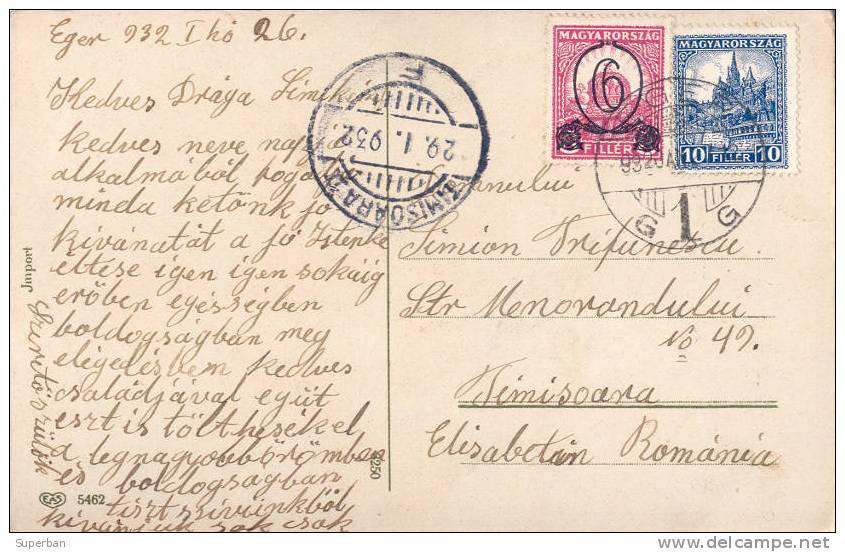 Eger 932 I hó 26.
Kedves Drága Simi
kedves neve napja
alkalmából foga
minda ketőnk jo
kivánatát a jó Istenke
éltese igen igen sokáig
erőben egésségben
boldogságban meg
elégedésben kedves
családjával együt
eszt is tölthesékel
a legnagyobb örömben
és boldogságban
tiszt szivünkből
kivánjuk sok sok
Szerető szülők
Jmport
EAS 5462
3250
TIMISOARA 2
29.1.932
F
MAGYARORSZÁG
6
FILLÉR
MAGYARORSZÁG
10 FILLÉR 10
G 1 G
Domnului
Simion Trifunescu
Str Menorandului
No 49.
Timisoara
Elisabetin România
Superban
www.delcampe.net